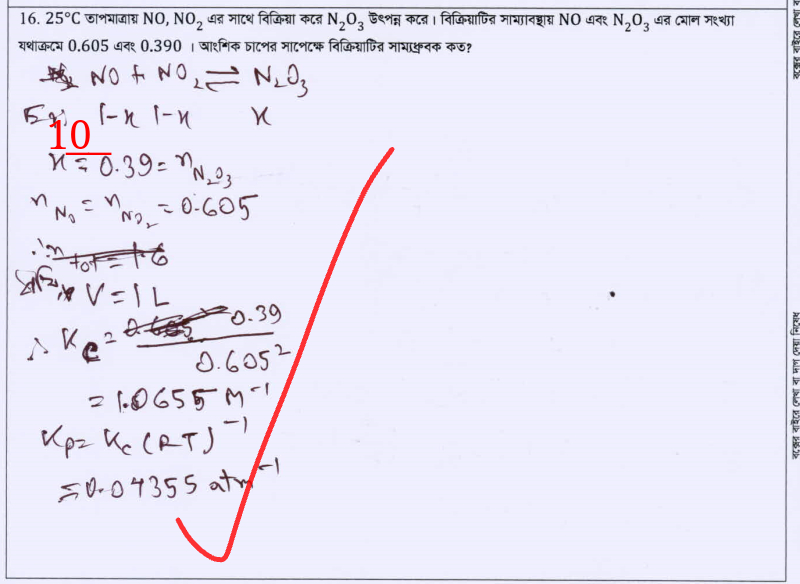 16. 25°C তাপমাত্রায় NO, NO₂ এর সাথে বিক্রিয়া করে N₂O₃ উৎপন্ন করে। বিক্রিয়াটির সাম্যাবস্থায় NO এবং N₂O₃ এর মোল সংখ্যা
যথাক্রমে 0.605 এবং 0.390 । আংশিক চাপের সাপেক্ষে বিক্রিয়াটির সাম্যধ্রুবক কত?
NO + NO₂ ⇌ N₂O₃
1-x 1-x x
10
x = 0.39 = n_N₂O₃
n_NO = n_NO₂ = 0.605
∴ n_tot = 1.6
V = 1 L
∴ K_c = 0.39 / 0.605²
= 1.0655 M⁻¹
K_p = K_c (RT)⁻¹
= 0.04355 atm⁻¹
বক্সের বাইরে লেখা বা দাগ দেয়া নিষেধ